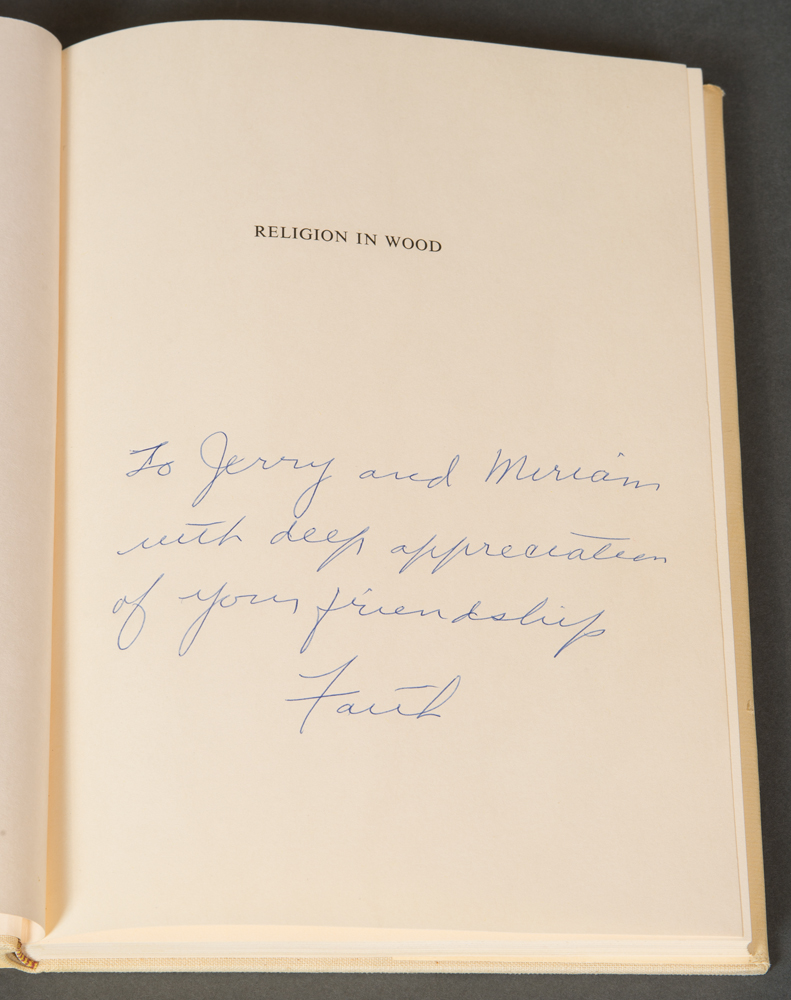 RELIGION IN WOOD
To Jerry and Miriam
with deep appreciation
of your friendship
Faith